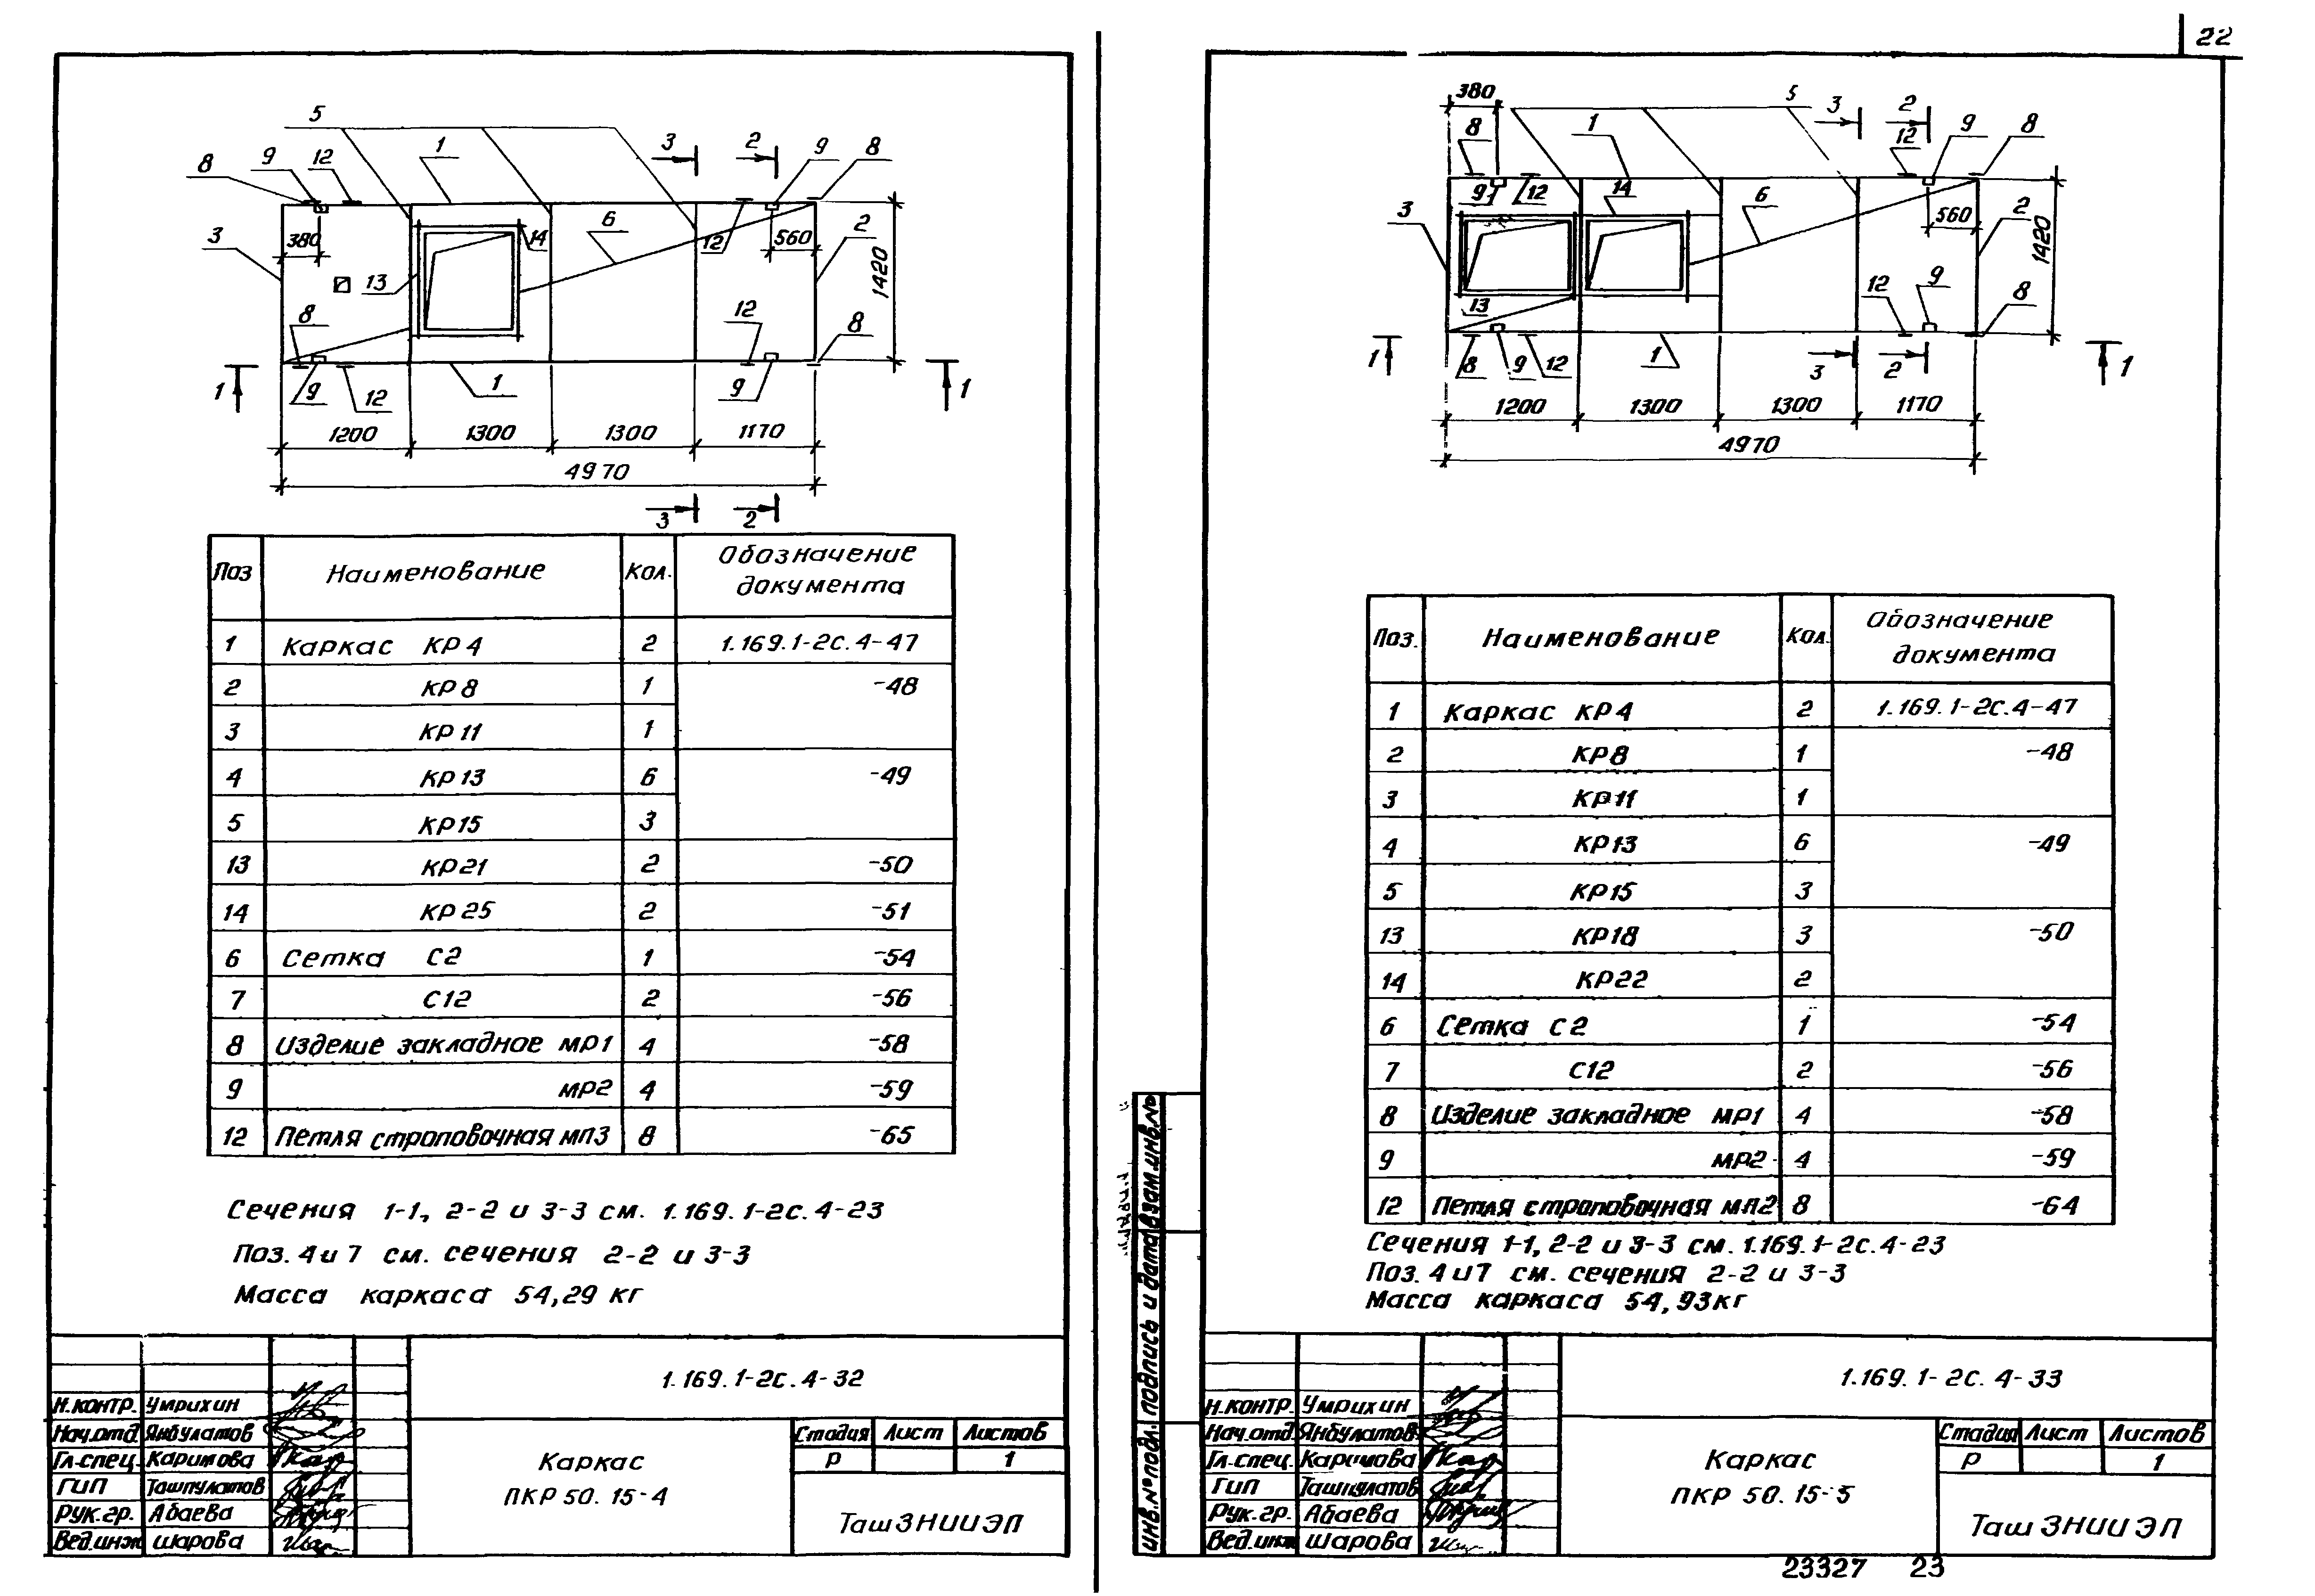 22
5
3
2
9
8
1
8
9
12
3
380
13
14
6
12
560
2
1420
8
12
8
1
9
12
1
9
1
1200
1300
1300
1170
4970
3
2
Поз
Наименование
Кол.
Обозначение
документа
1 Каркас КР4 2 1.169.1-2с.4-47
2 КР8 1 -48
3 КР11 1
4 КР13 6 -49
5 КР15 3
13 КР21 2 -50
14 КР25 2 -51
6 Сетка С2 1 -54
7 С12 2 -56
8 Изделие закладное МР1 4 -58
9 МР2 4 -59
12 Петля строповочная МП3 8 -65
Сечения 1-1, 2-2 и 3-3 см. 1.169.1-2с.4-23
Поз. 4 и 7 см. сечения 2-2 и 3-3
Масса каркаса 54,29 кг
1.169.1-2с.4-32
Н.контр. Умрихин
Нач.отд Янбулатов
Гл.спец. Каримова
ГИП Ташпулатов
Рук.гр. Абаева
Вед.инж Шарова
Каркас
ПКР 50.15-4
Стадия Лист Листов
Р 1
ТашЗНИИЭП
380
5
3
2
8
1
12
9
8
9
12
14
6
560
2
3
1420
13
12
9
8
1
8
9
12
1
3
2
1
1200
1300
1300
1170
4970
Поз.
Наименование
Кол.
Обозначение
документа
1 Каркас КР4 2 1.169.1-2с.4-47
2 КР8 1 -48
3 КР11 1
4 КР13 6 -49
5 КР15 3
13 КР18 3 -50
14 КР22 2
6 Сетка С2 1 -54
7 С12 2 -56
8 Изделие закладное МР1 4 -58
9 МР2 4 -59
12 Петля строповочная МП2 8 -64
Сечения 1-1, 2-2 и 3-3 см. 1.169.1-2с.4-23
Поз. 4 и 7 см. сечения 2-2 и 3-3
Масса каркаса 54,93кг
Инв.№подл. Подпись и дата Взам.инв.№
1.169.1-2с.4-33
Н.контр. Умрихин
Нач.отд. Янбулатов
Гл.спец. Каримова
ГИП Ташпулатов
Рук.гр. Абаева
Вед.инж Шарова
Каркас
ПКР 50.15-5
Стадия Лист Листов
Р 1
ТашЗНИИЭП
23327 23